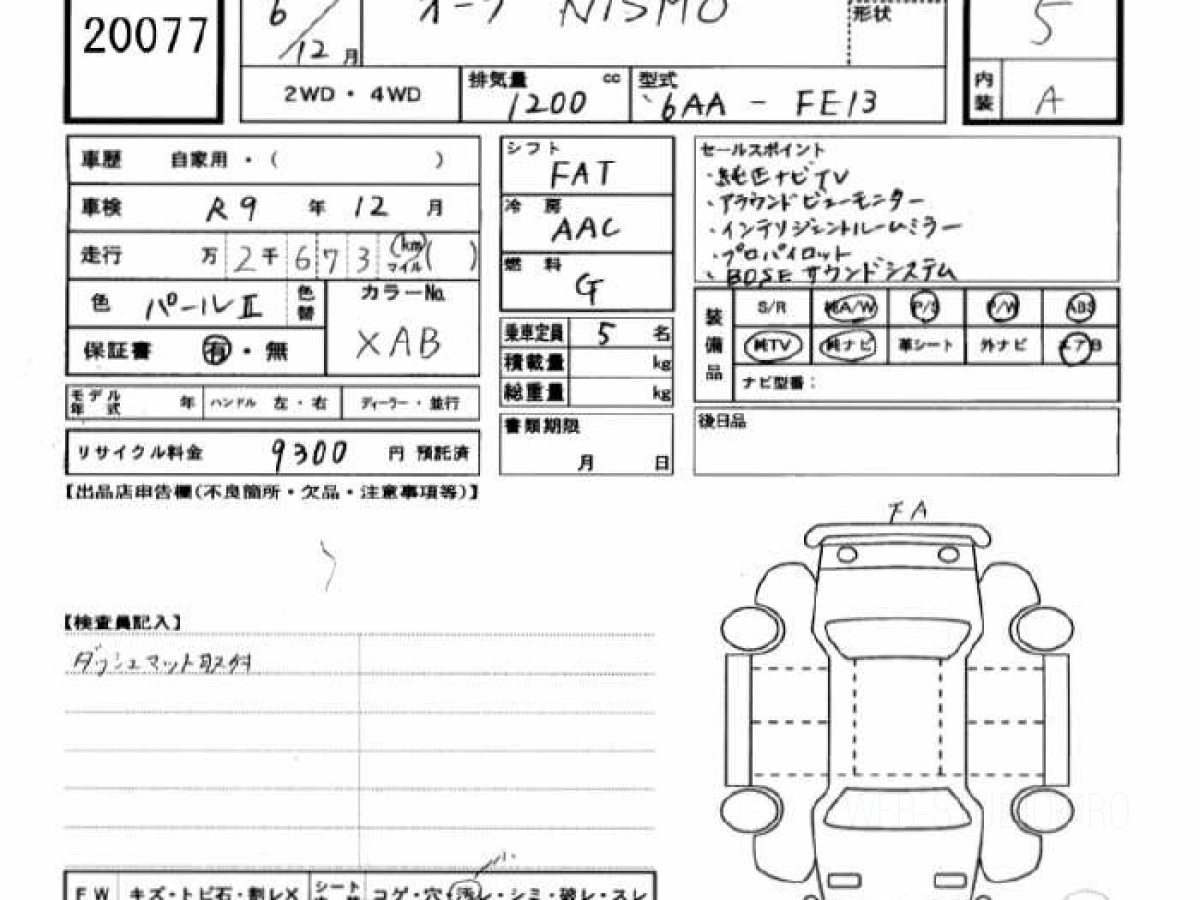 20077
6/12月
オーラ NISMO
形状
5
2WD・4WD
排気量 cc 1200
型式 6AA - FE13
内装 A
車歴 自家用・( )
車検 R9 年 12 月
走行 万 2千 6 7 3 km マイル( )
色 パールⅡ 色替
カラーNo. XAB
保証書 有・無
モデル年式 年 ハンドル 左・右 ディーラー・並行
リサイクル料金 9300 円 預託済
シフト FAT
冷房 AAC
燃料 G
乗車定員 5 名
積載量 kg
総重量 kg
書類期限 月 日
セールスポイント
・純正ナビTV
・アラウンドビューモニター
・インテリジェントルームミラー
・プロパイロット
・BOSEサウンドシステム
装備品
S/R 純A/W P/S P/W ABS
純TV 純ナビ 革シート 外ナビ エアB
ナビ型番:
後日品
【出品店申告欄(不良箇所・欠品・注意事項等)】
【検査員記入】
ダッシュマット取付
FW キズ・トビ石・割レX シート コゲ・穴・汚レ・シミ・破レ・スレ